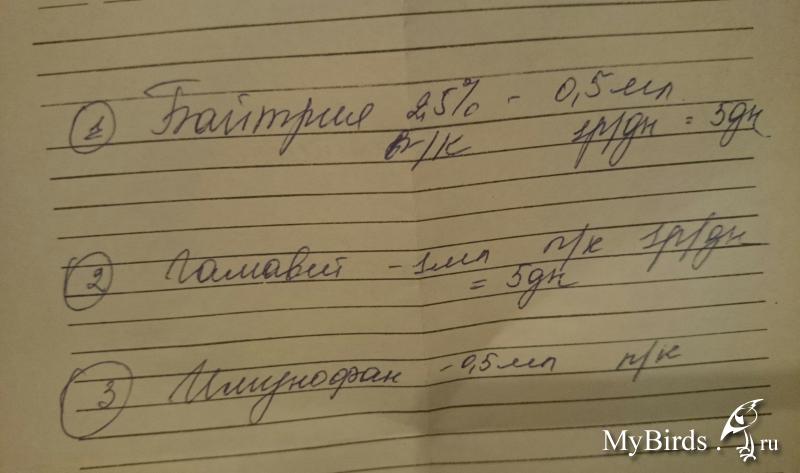 ① Байтрил 2,5% - 0,5 мл
п/к 1р/дн = 5дн
② Гамавит - 1мл п/к 1р/дн
= 5дн
③ Имунофан - 0,5 мл п/к
MyBirds.ru